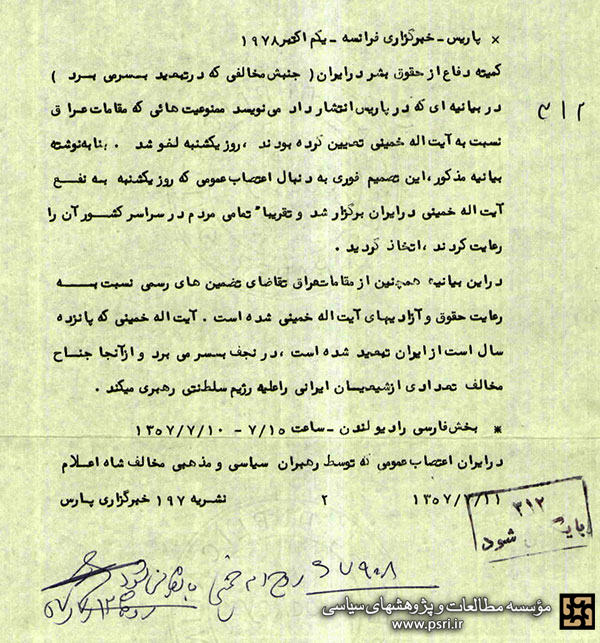 × پاریس - خبرگزاری فرانسه - یکم اکتبر ۱۹۷۸
کمیته دفاع از حقوق بشر در ایران ( جنبش مخالفی که در تبعید بسر می برد )
در بیانیه ای که در پاریس انتشار داد می نویسد ممنوعیت هائی که مقامات عراق
۳۱۲
نسبت به آیت اله خمینی تعیین کرده بودند ، روز یکشنبه لغو شد . بنا به نوشته
بیانیه مذکور ، این تصمیم فوری به دنبال اعتصاب عمومی که روز یکشنبه به نفع
آیت اله خمینی در ایران برگزار شد و تقریبا" تمامی مردم در سراسر کشور آن را
رعایت کردند ، اتخاذ گردید .
در این بیانیه همچنین از مقامات عراق تقاضای تضمین های رسمی نسبت به
رعایت حقوق و آزادیهای آیت اله خمینی شده است . آیت اله خمینی که پانزده
سال است از ایران تبعید شده است ، در نجف بسر می برد و از آنجا جناح
مخالف تعدادی از شیعیان ایرانی را علیه رژیم سلطنتی رهبری میکند .
* بخش فارسی رادیو لندن - ساعت ۷/۱۵ - ۱۳۵۷/۷/۱۰
در ایران اعتصاب عمومی که توسط رهبران سیاسی و مذهبی مخالف شاه اعلام
۱۳۵۷/۷/۱۱ ۲ نشریه ۱۹۷ خبرگزاری پارس
۳۱۲
شود
مؤسسه مطالعات و پژوهشهای سیاسی
www.psri.ir